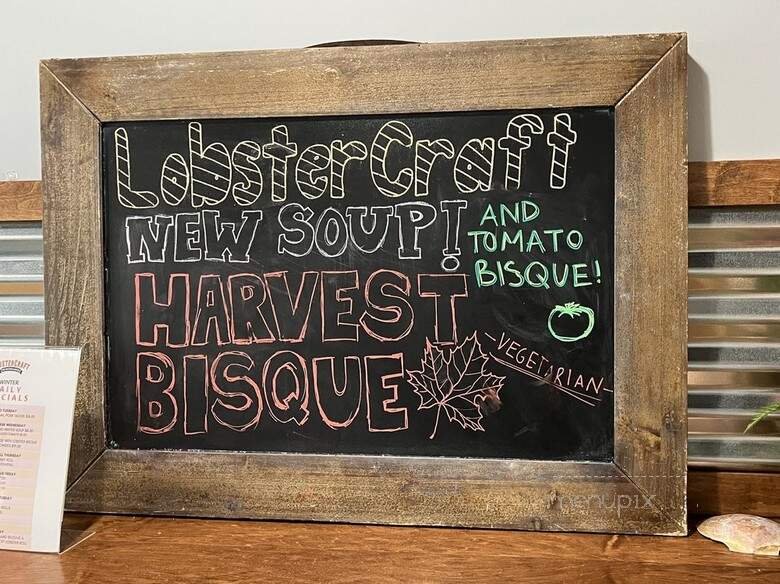 LobsterCraft
NEW SOUP!
AND
TOMATO
BISQUE!
HARVEST
BISQUE
-VEGETARIAN-
LOBSTERCRAFT
WINTER
DAILY
SPECIALS
menupix